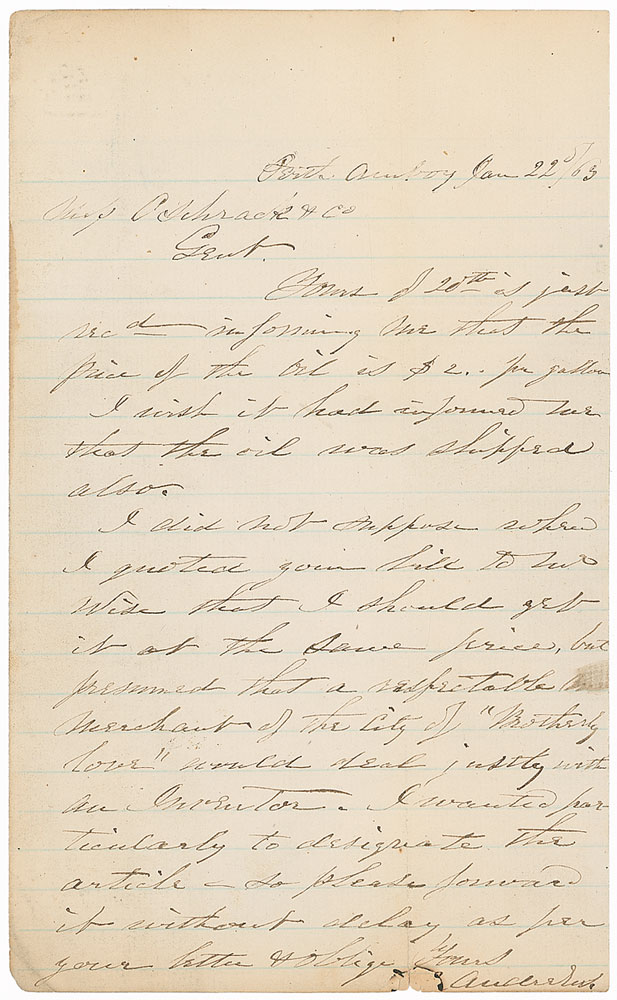 Perth Amboy Jan 22d/63
Mess C Schrack & Co
Gent.
Yours of 20th is just
recd informing me that the
price of the oil is $2.. per gallon
I wish it had informed me
that the oil was shipped
also.
I did not suppose when
I quoted your bill to Mr
Wise that I should get
it at the same price, but
presumed that a respectable
merchant of the City of "Brotherly
love" would deal justly with
an Inventor. I wanted par
ticularly to designate the
article - so please forward
it without delay as per
your letter & oblige Yours